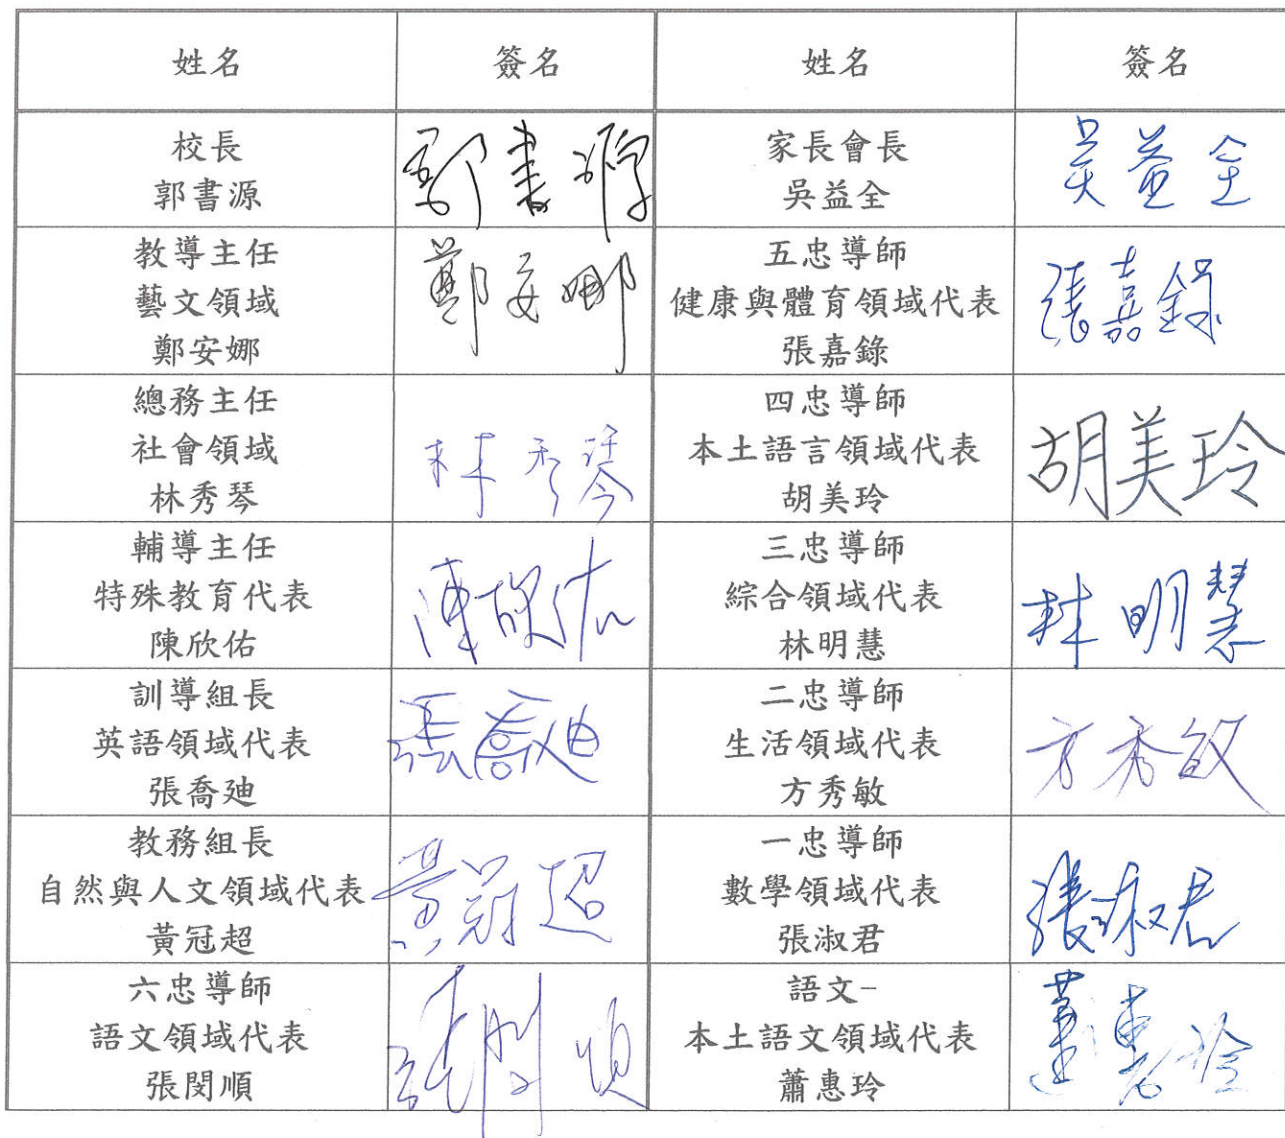 姓名 簽名 姓名 簽名
校長
郭書源
郭書源
家長會長
吳益全
吳益全
教導主任
藝文領域
鄭安娜
鄭安娜
五忠導師
健康與體育領域代表
張嘉錄
張嘉錄
總務主任
社會領域
林秀琴
林秀琴
四忠導師
本土語言領域代表
胡美玲
胡美玲
輔導主任
特殊教育代表
陳欣佑
陳欣佑
三忠導師
綜合領域代表
林明慧
林明慧
訓導組長
英語領域代表
張喬迪
張喬迪
二忠導師
生活領域代表
方秀敏
方秀敏
教務組長
自然與人文領域代表
黃冠超
黃冠超
一忠導師
數學領域代表
張淑君
張淑君
六忠導師
語文領域代表
張閔順
張閔順
語文-
本土語文領域代表
蕭惠玲
蕭惠玲